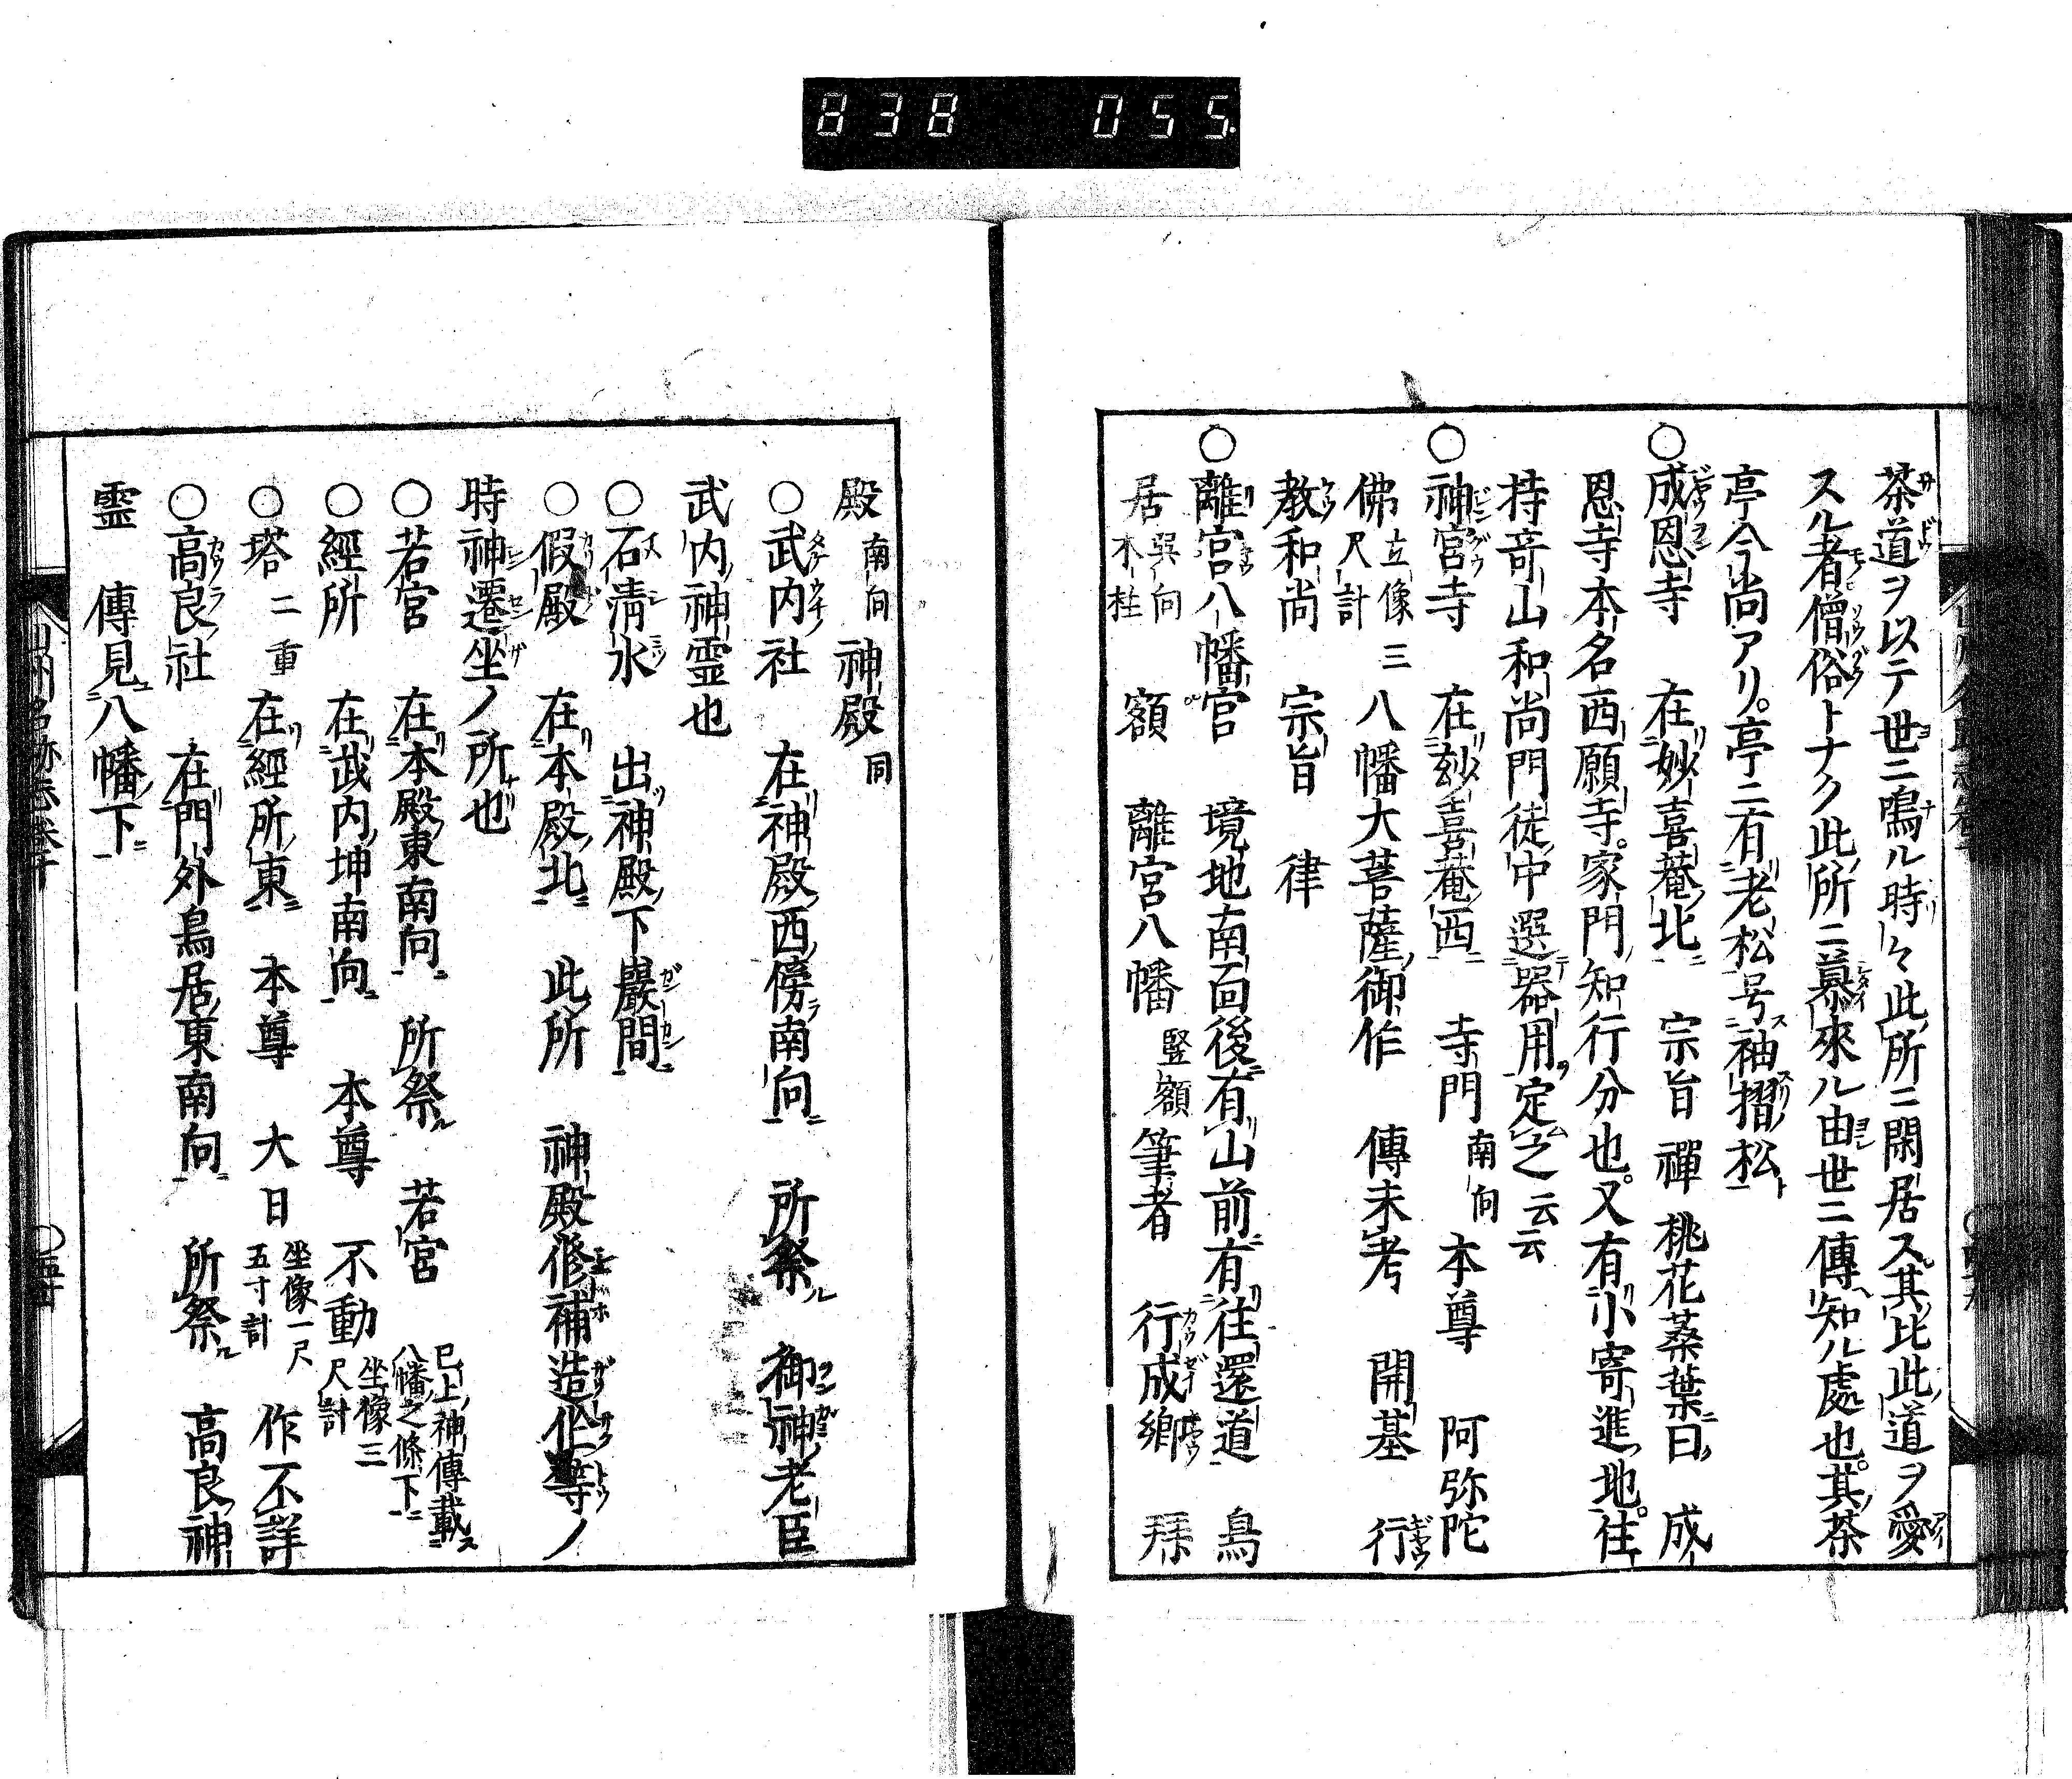 838 055
茶道ヲ以テ世ニ鳴ル時々此所ニ閑居ス其比此道ヲ愛
スル者僧俗トナク此所ニ慕來ル由世ニ傳知ル處也其茶
亭今尚アリ亭ニ有老松号袖摺松
○成恩寺 在妙喜菴北 宗旨 禪 桃花蘂葉曰 成
恩寺本名西願寺家門知行分也又有小寄進地住
持竒山和尚門徒中選器用定之云云
○神宮寺 在玅喜菴西 寺門 南向 本尊 阿弥陀
佛 立像三尺計 八幡大菩薩御作 傳未考 開基 行
教和尚 宗旨 律
○離宮八幡宮 境地南面後有山前有往還道 鳥
居 巽向木柱 額 離宮八幡 竪額 筆者 行成卿 拜
殿 南向 神殿 同
○武内社 在神殿西傍南向 所祭 御神老臣
武内神霊也
○石清水 出神殿下巖間
○假殿 在本殿北 此所 神殿修補造作等ノ
時神遷坐ノ所也
○若宮 在本殿東南向 所祭 若宮 已上神傳載八幡之條下
○經所 在武内坤南向 本尊 不動 坐像三尺計
○塔 二重 在經所東 本尊 大日 坐像一尺五寸計 作不詳
○高良社 在門外鳥居東南向 所祭 高良神
霊 傳見八幡下